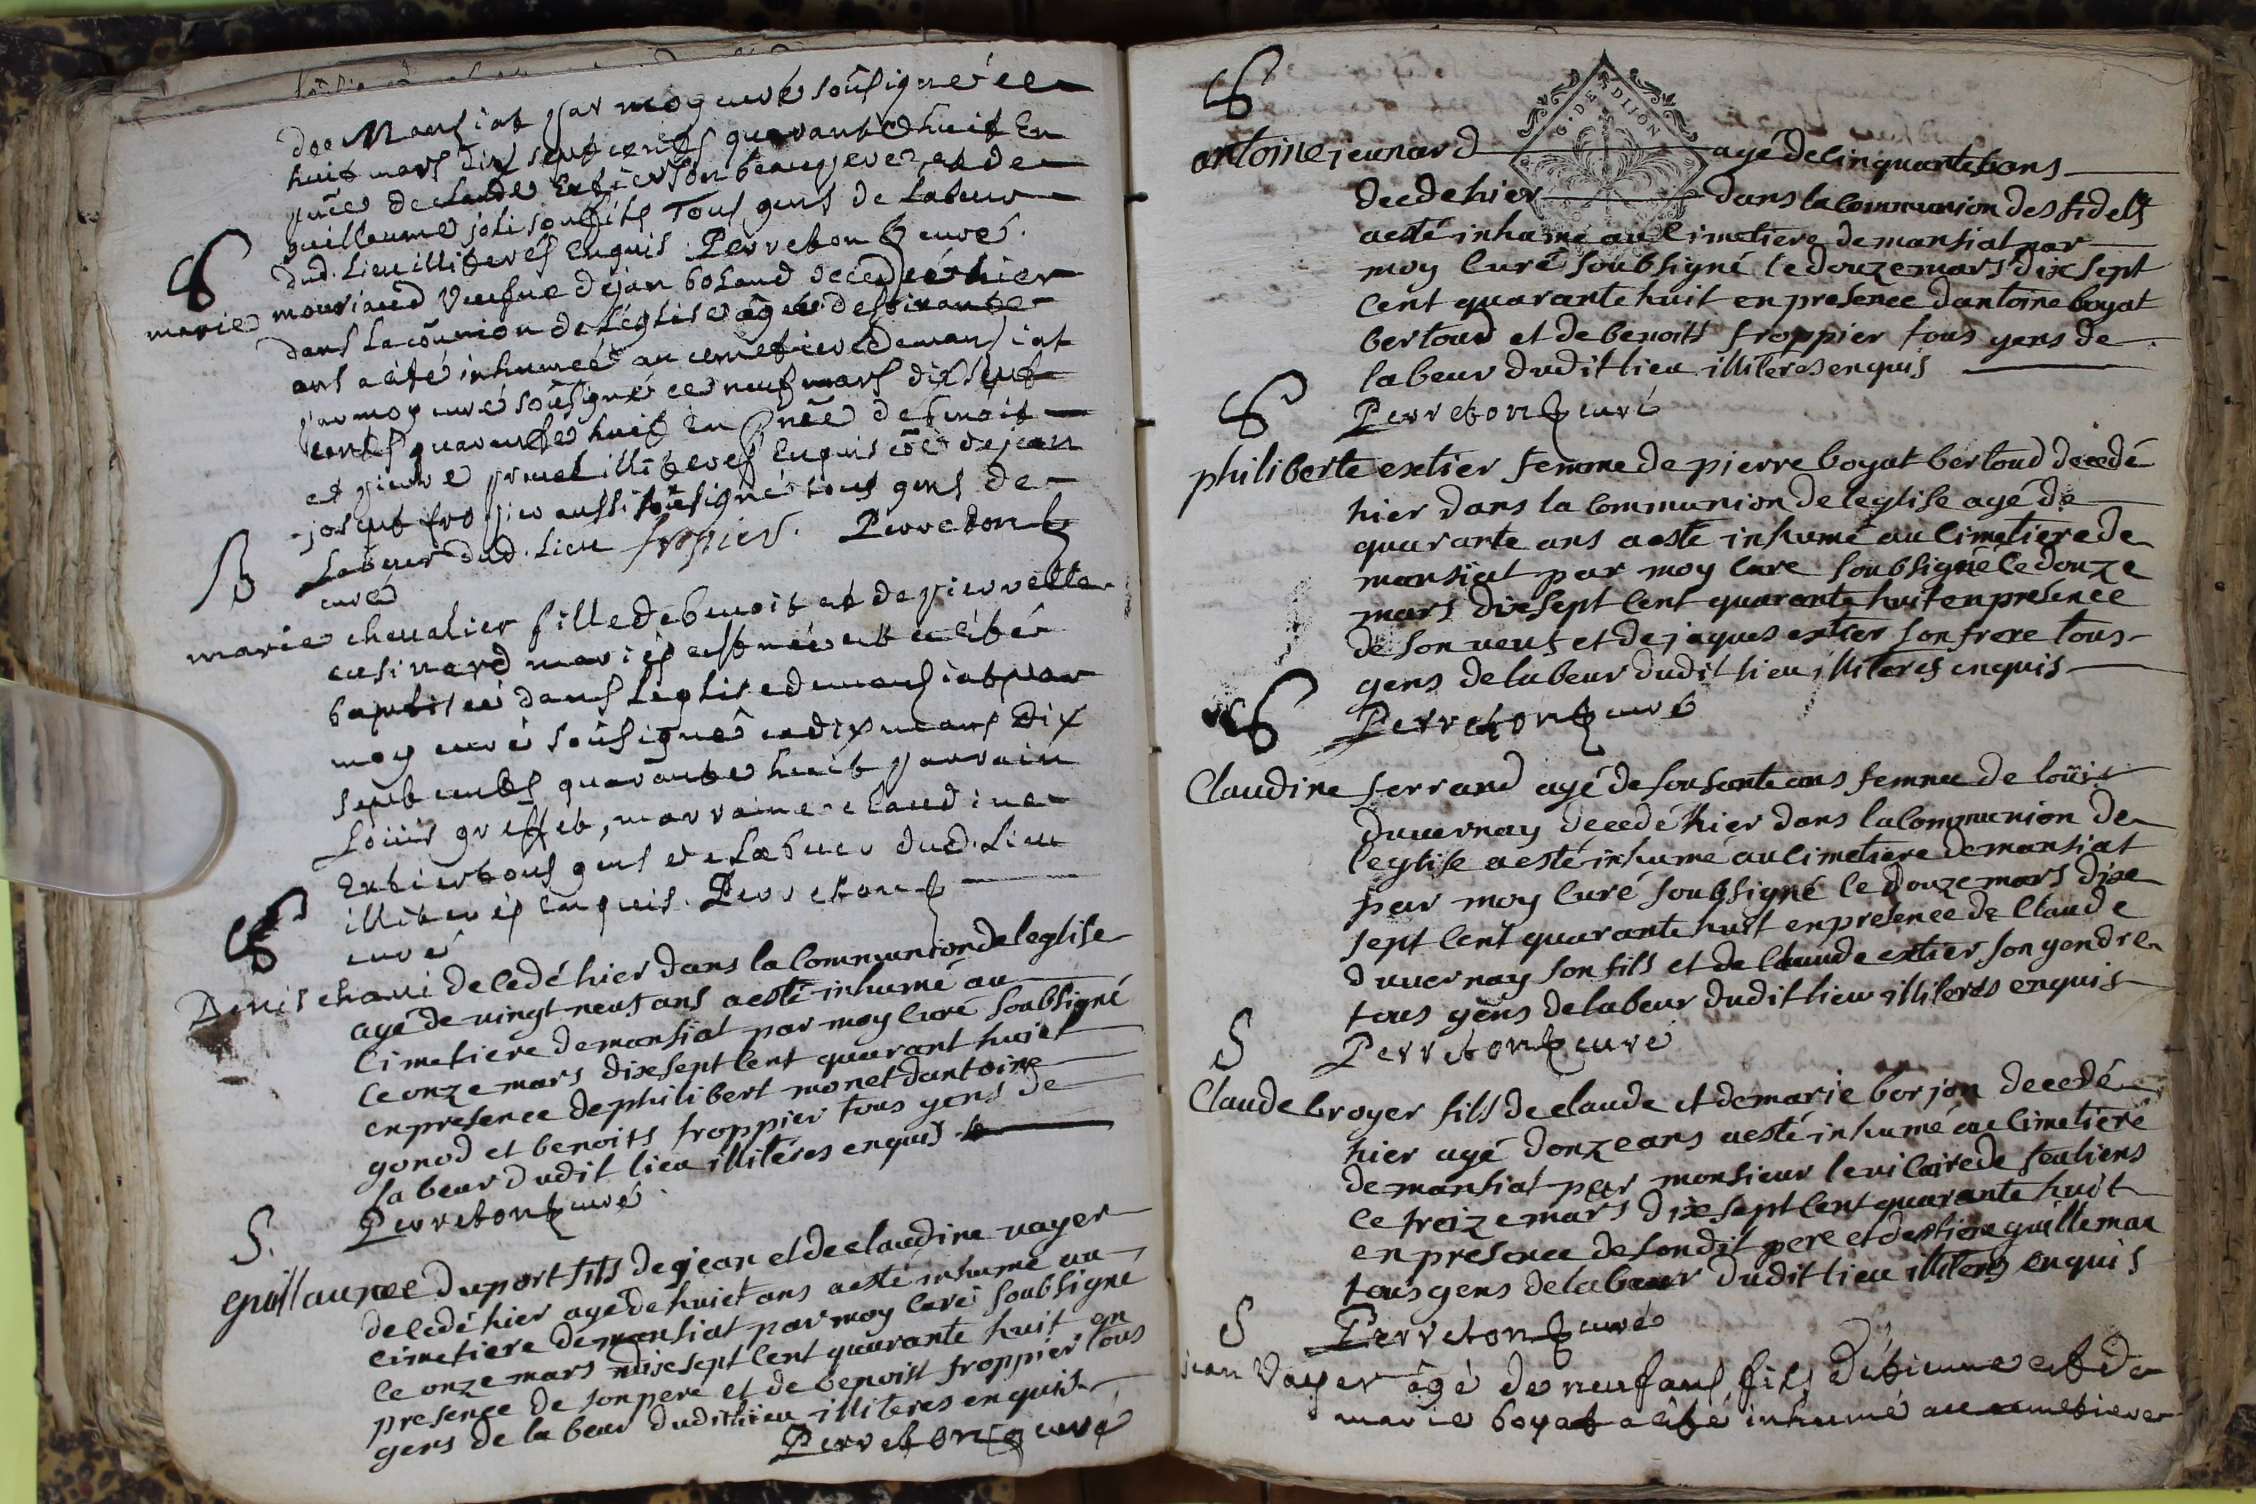 de Mansiat par moy curé soûsigné ce
huit mars dix sept cents quarante huit En
pñce de claude Extier son beaupere et de
guillaume joli soussités Tous gens de Labeur
dud. Lieu illiterés Enquis. Perreton curé.
marie mouriaud Veufue de jan bolaud decedée hier
dans la coûnion de l'église âgée de soixante
ans a été inhumée au cemetiere de mansiat
par moy curé soûsigné ce neuf mars dix sept
cents quarante huit En pñce de benoit
et pierre pruel illiterés Enquis côe de jean
joseph fropier aussi soûsigné tous gens de
Labeur dud. Lieu fropier. Perreton
curé
B
marie chevalier fille de benoit et de pierrette
cusinard mariés est née et a été
baptisée dans l'eglise de mansiat par
moy curé soûsigné ce dix mars dix
sept cents quarante huit parrain
Loüis greffet, marraine claudine
Extier tous gens de Labeur dud. Lieu
illiterés Enquis. Perreton
curé
Denis chavi decedé hier dans la communion de leglise
agé de vingt neuf ans aesté inhumé au
cimetiere de mansiat par moy curé soubsigné
ce onze mars dixsept cent quarant huict
en presence de philibert monet dantoine
gonod et benoits froppier tous gens de
labeur dudit lieu illiteres enquis
Perreton curé
S.
guillaume duport fils de jean et de claudine vayer
decedé hier agé de huict ans aesté inhumé au
cimetiere de mansiat par moy curé soubsigné
ce onze mars dixsept cent quarante huit en
presence de son pere et de benoist froppier tous
gens de labeur dudit lieu illiteres enquis
Perreton curé
G. DE DIJON
antoine jeunard agé de cinquante ans
decede hier dans la communion des fidelles
aesté inhumé au cimetiere de mansiat par
moy curé soubsigné le douze mars dix sept
cent quarante huit en presence dantoine boyat
bertoud et de benoits froppier tous gens de
labeur dudit lieu illiteres enquis
Perreton curé
philiberte extier femme de pierre boyat bertoud decedé
hier dans la communion de leglise agé de
quarante ans aesté inhumé au cimetiere de
mansiat par moy curé soubsigné ce douze
mars dixsept cent quarante huit en presence
de son veuf et de jaques extier son frere tous
gens de labeur dudit lieu illiteres enquis
Perreton curé
Claudine ferrand agé de soisante ans femme de loüis
duvernay decedé hier dans la communion de
leglise aesté inhumé au cimetiere de mansiat
par moy curé soubsigné le douze mars dixe
sept cent quarante huit en presence de Claude
duvernay son fils et de claude extier son gendre
tous gens de labeur dudit lieu illiteres enquis
Perreton curé
S
Claude broyer fils de claude et de marie borjon decedé
hier agé donze ans aesté inhumé au cimetiere
de mansiat par monsieur le vicaire de feuliens
ce treize mars dixsept cent quarante huit
en presence de sondit pere et destiene guilleman
tous gens de labeur dudit lieu illiteres enquis
Perreton curé
S
jean Vayer âgé de neuf ans fils d'étienne et de
marie boyat a été inhumé au cemetiere